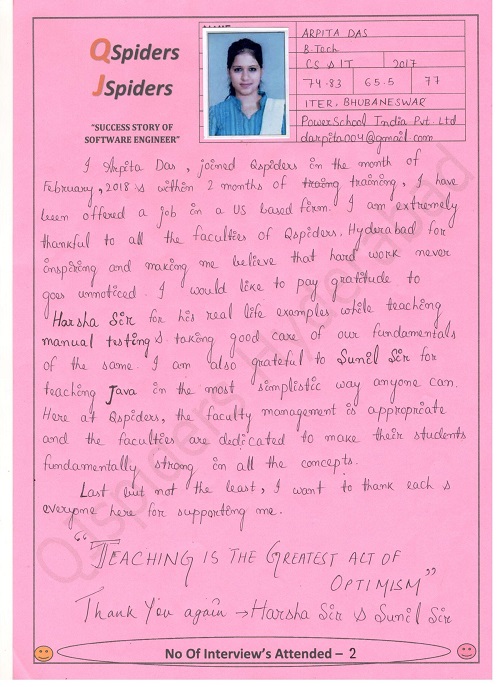 QSpiders
JSpiders
"SUCCESS STORY OF
SOFTWARE ENGINEER"
ARPITA DAS
B.Tech
CS & IT 2017
74.83 65.5 77
ITER, BHUBANESWAR
PowerSchool India Pvt. Ltd
darpita004@gmail.com
I Arpita Das, joined Qspiders in the month of
February, 2018 & within 2 months of training, I have
been offered a job in a US based firm. I am extremely
thankful to all the faculties of Qspiders, Hyderabad for
inspiring and making me believe that hard work never
goes unnoticed. I would like to pay gratitude to
Harsha Sir for his real life examples while teaching
manual testing & taking good care of our fundamentals
of the same. I am also grateful to Sunil Sir for
teaching Java in the most simplistic way anyone can.
Here at Qspiders, the faculty management is appropriate
and the faculties are dedicated to make their students
fundamentally strong in all the concepts.
Last but not the least, I want to thank each &
everyone here for supporting me.
"TEACHING IS THE GREATEST ACT OF
OPTIMISM"
Thank You again → Harsha Sir & Sunil Sir
No Of Interview's Attended – 2